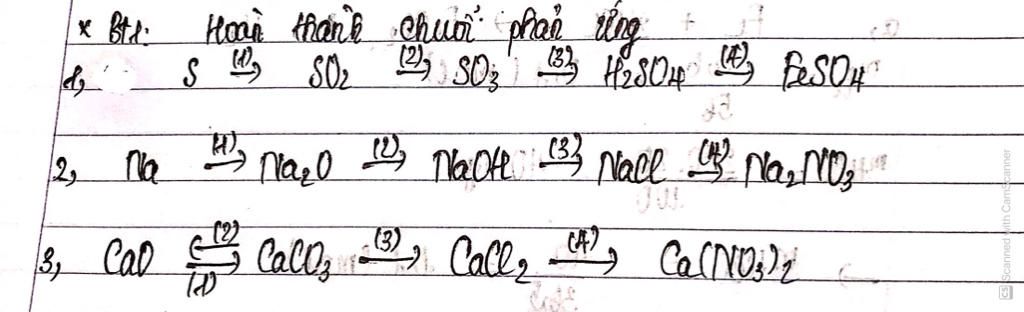 * Bt1: Hoàn thành chuỗi phản ứng
1, S (1)→ SO2 (2)→ SO3 (3)→ H2SO4 (4)→ FeSO4
2, Na (1)→ Na2O (2)→ NaOH (3)→ NaCl (4)→ Na2NO3
3, CaO (2)⇄(1) CaCO3 (3)→ CaCl2 (4)→ Ca(NO3)2
CS Scanned with CamScanner